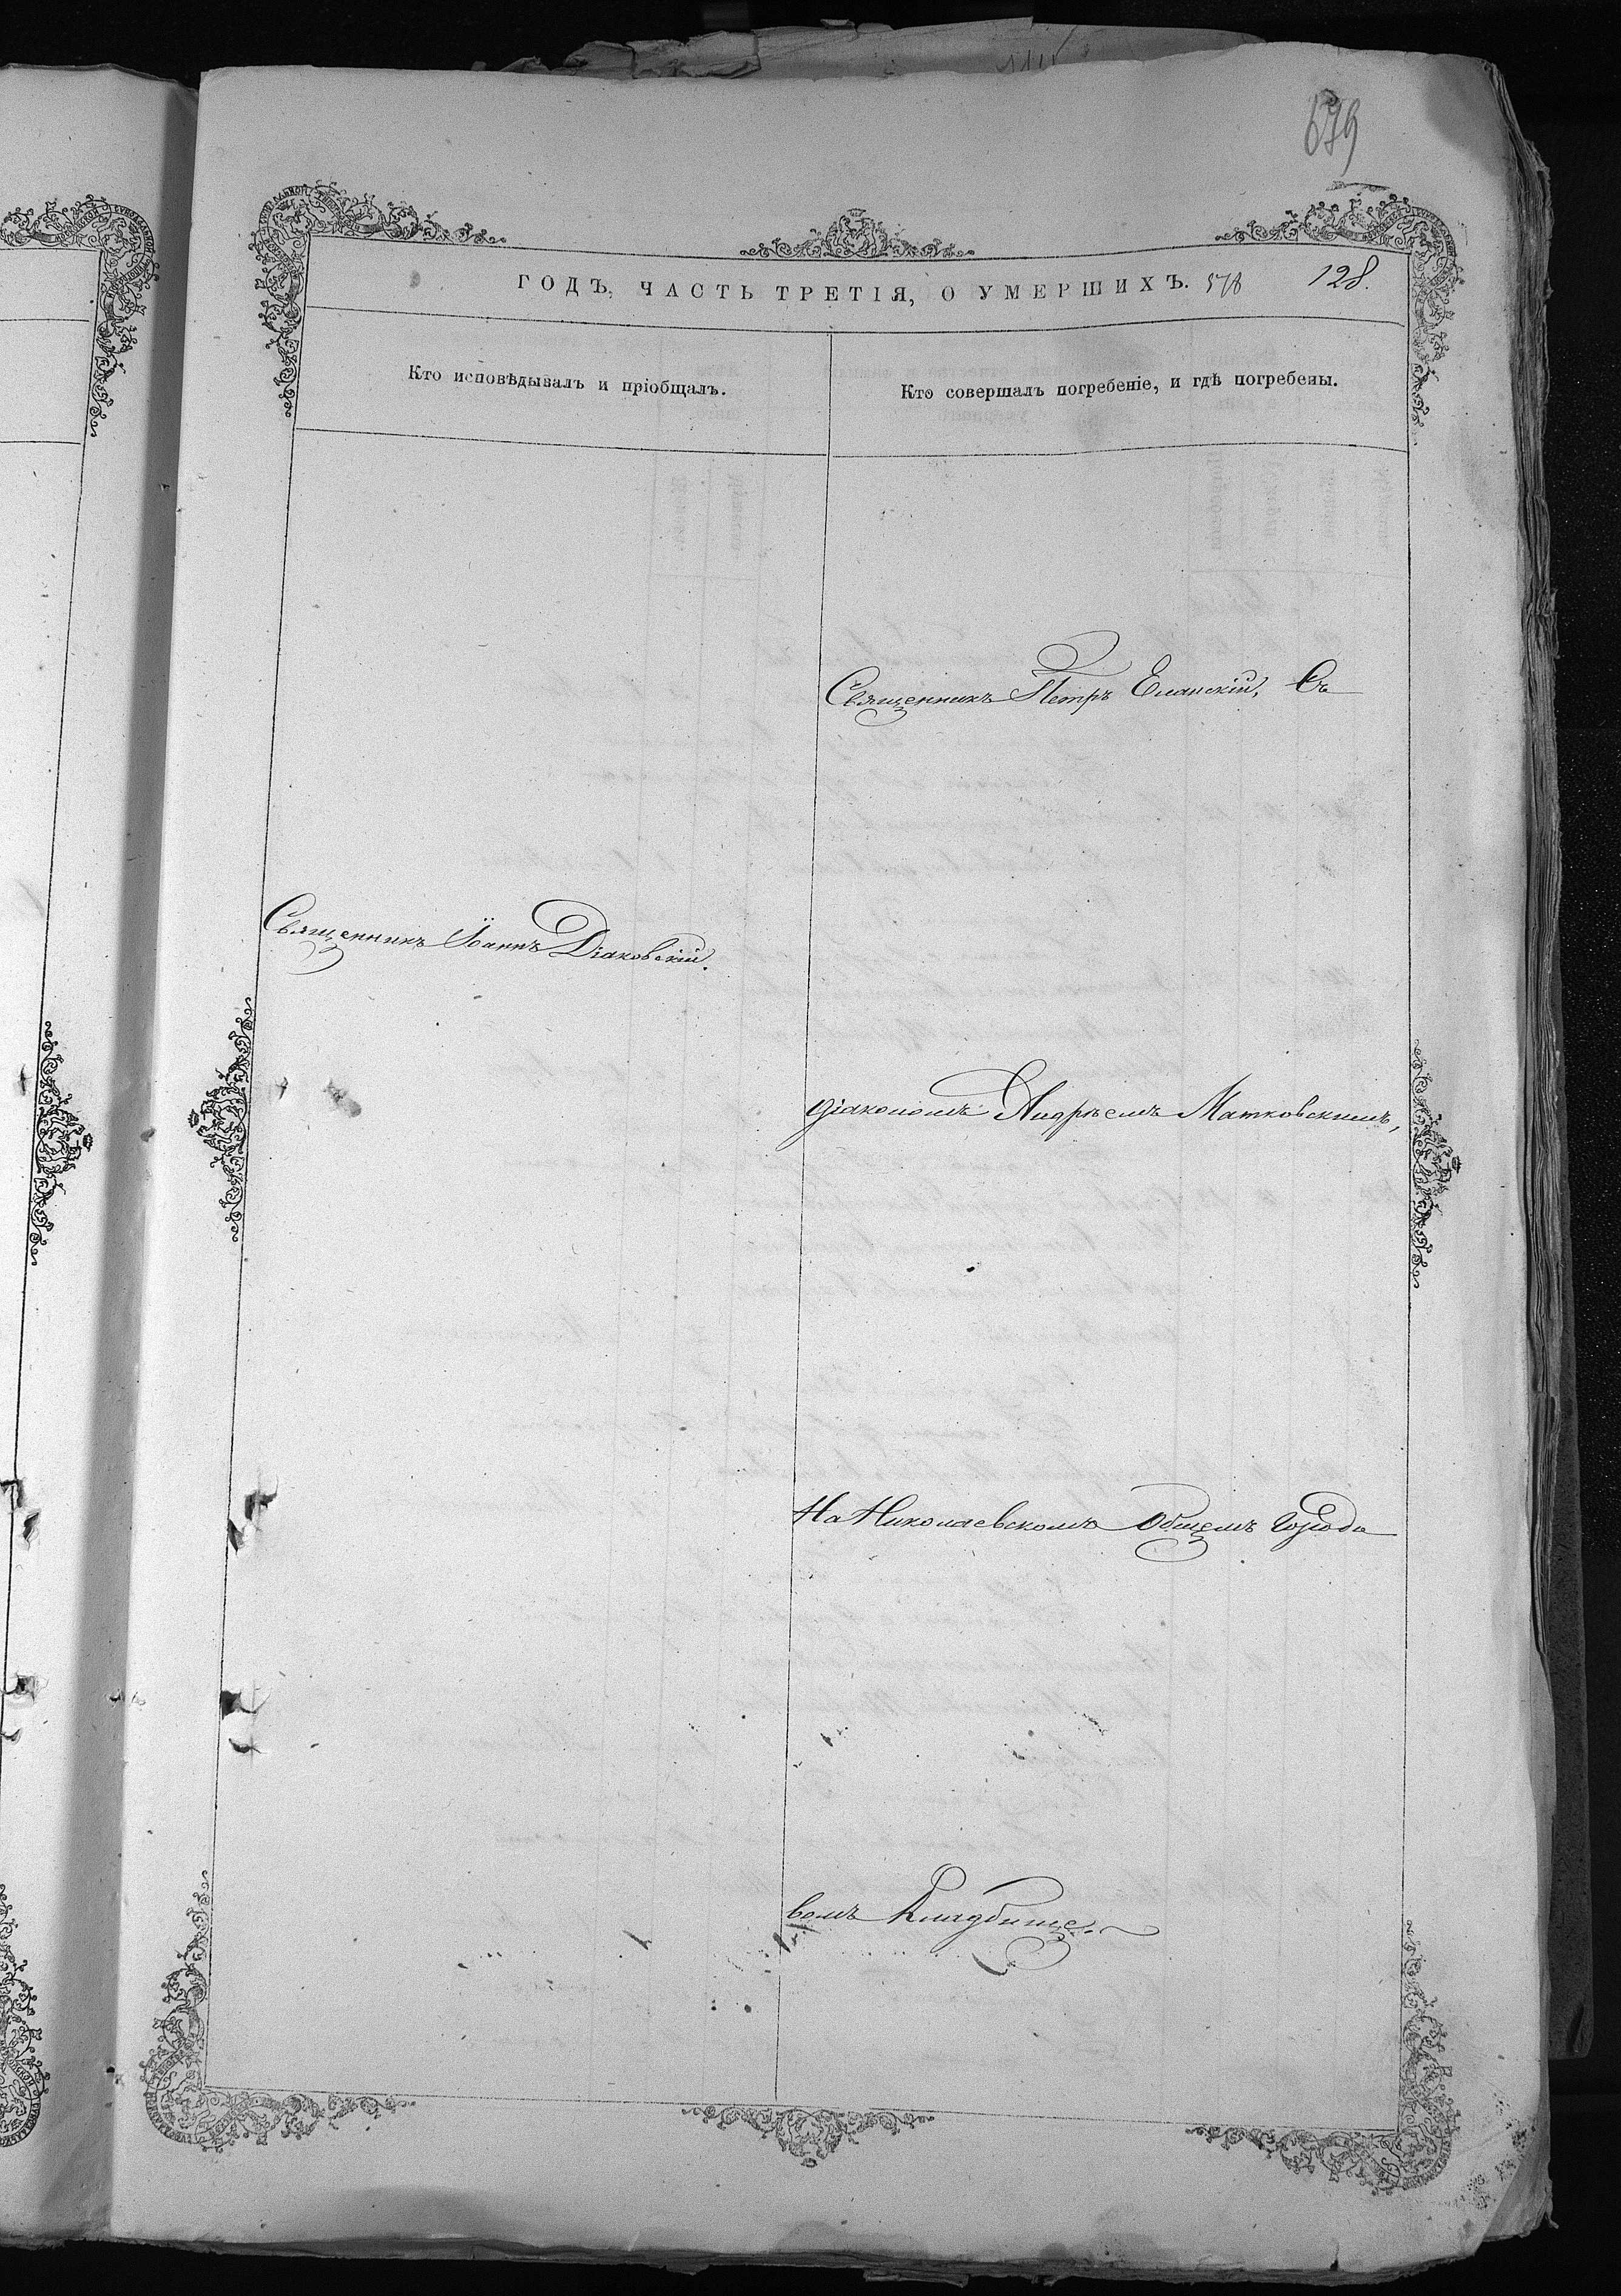 679
ГОДЪ, ЧАСТЬ ТРЕТІЯ, О УМЕРШИХЪ. 578 128.
Кто исповѣдывалъ и пріобщалъ.
Кто совершалъ погребеніе, и гдѣ погребены.
Священникъ Петръ Еланскій, Съ
Священникъ Іоаннъ Діаковскій.
діакономъ Андреемъ Матковскимъ,
На Николаевскомъ Общемъ Городо
вомъ Кладбище.